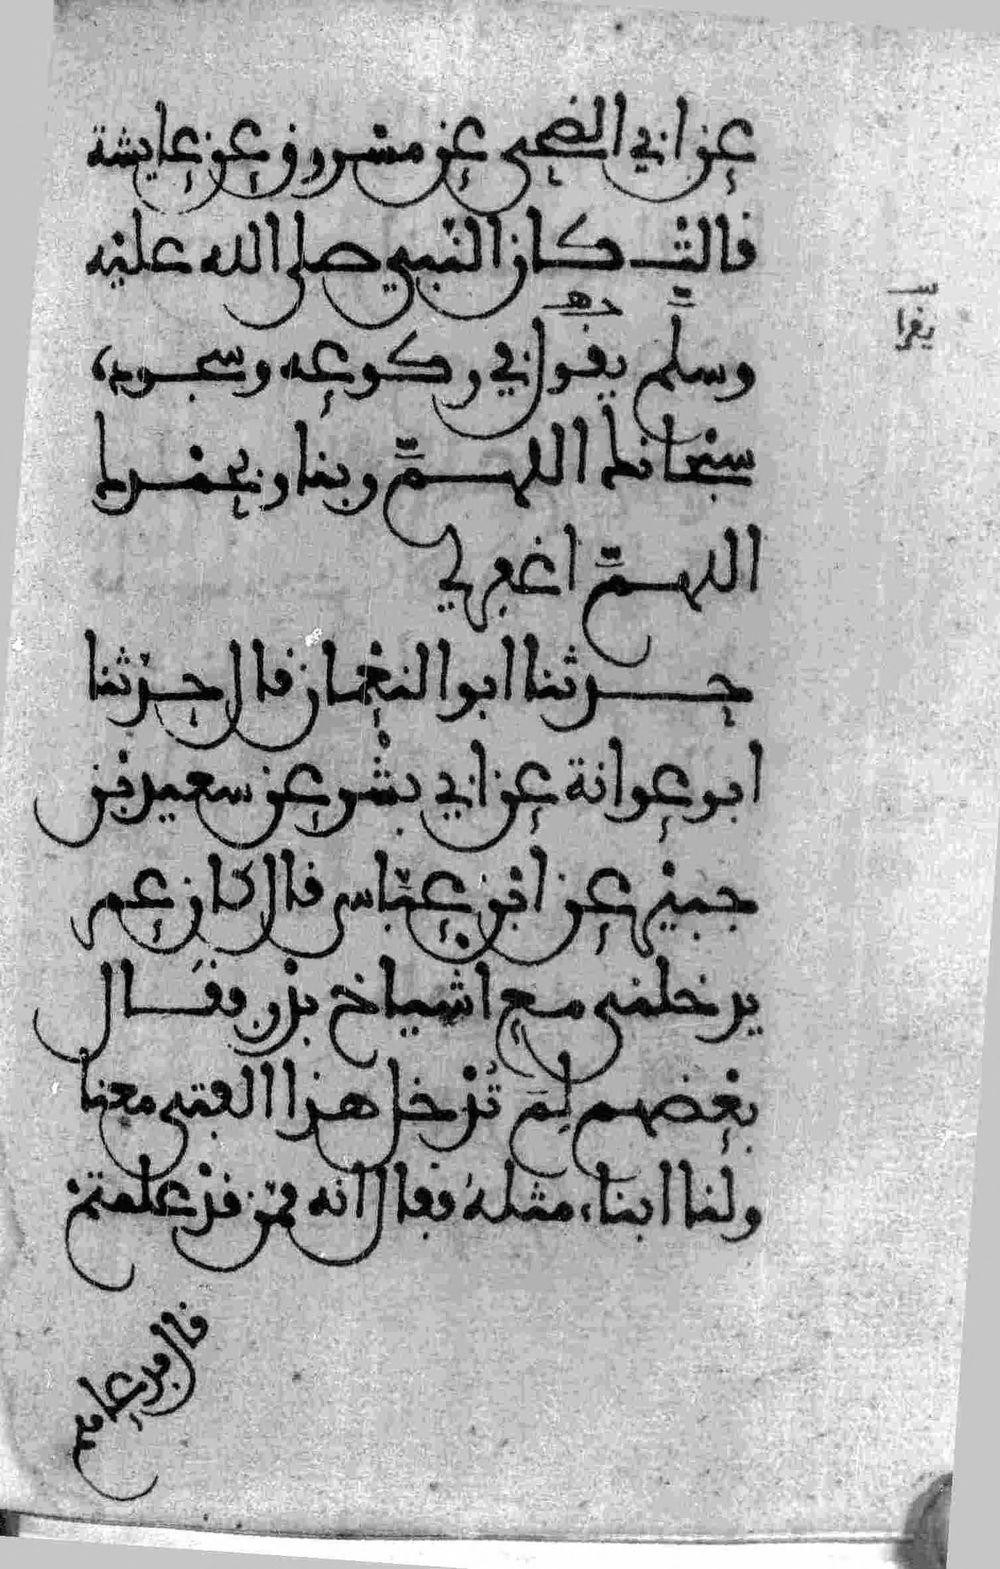 عن ابي الضحى عن مسروق عن عايشة
قالت كان النبي صلى الله عليه
وسلم يقول في ركوعه وسجوده
سبحانك اللهم ربنا وبحمدك
اللهم اغفر لي
حدثنا ابو النعمان قال حدثنا
ابو عوانة عن ابي بشر عن سعيد بن
جبير عن ابن عباس قال كان عمر
يدخلني مع اشياخ بدر فقال
بعضهم لم تدخل هذا الفتى معنا
ولنا ابناء مثله فقال انه ممن قد علمتم
يقرا
قال فدعاهم